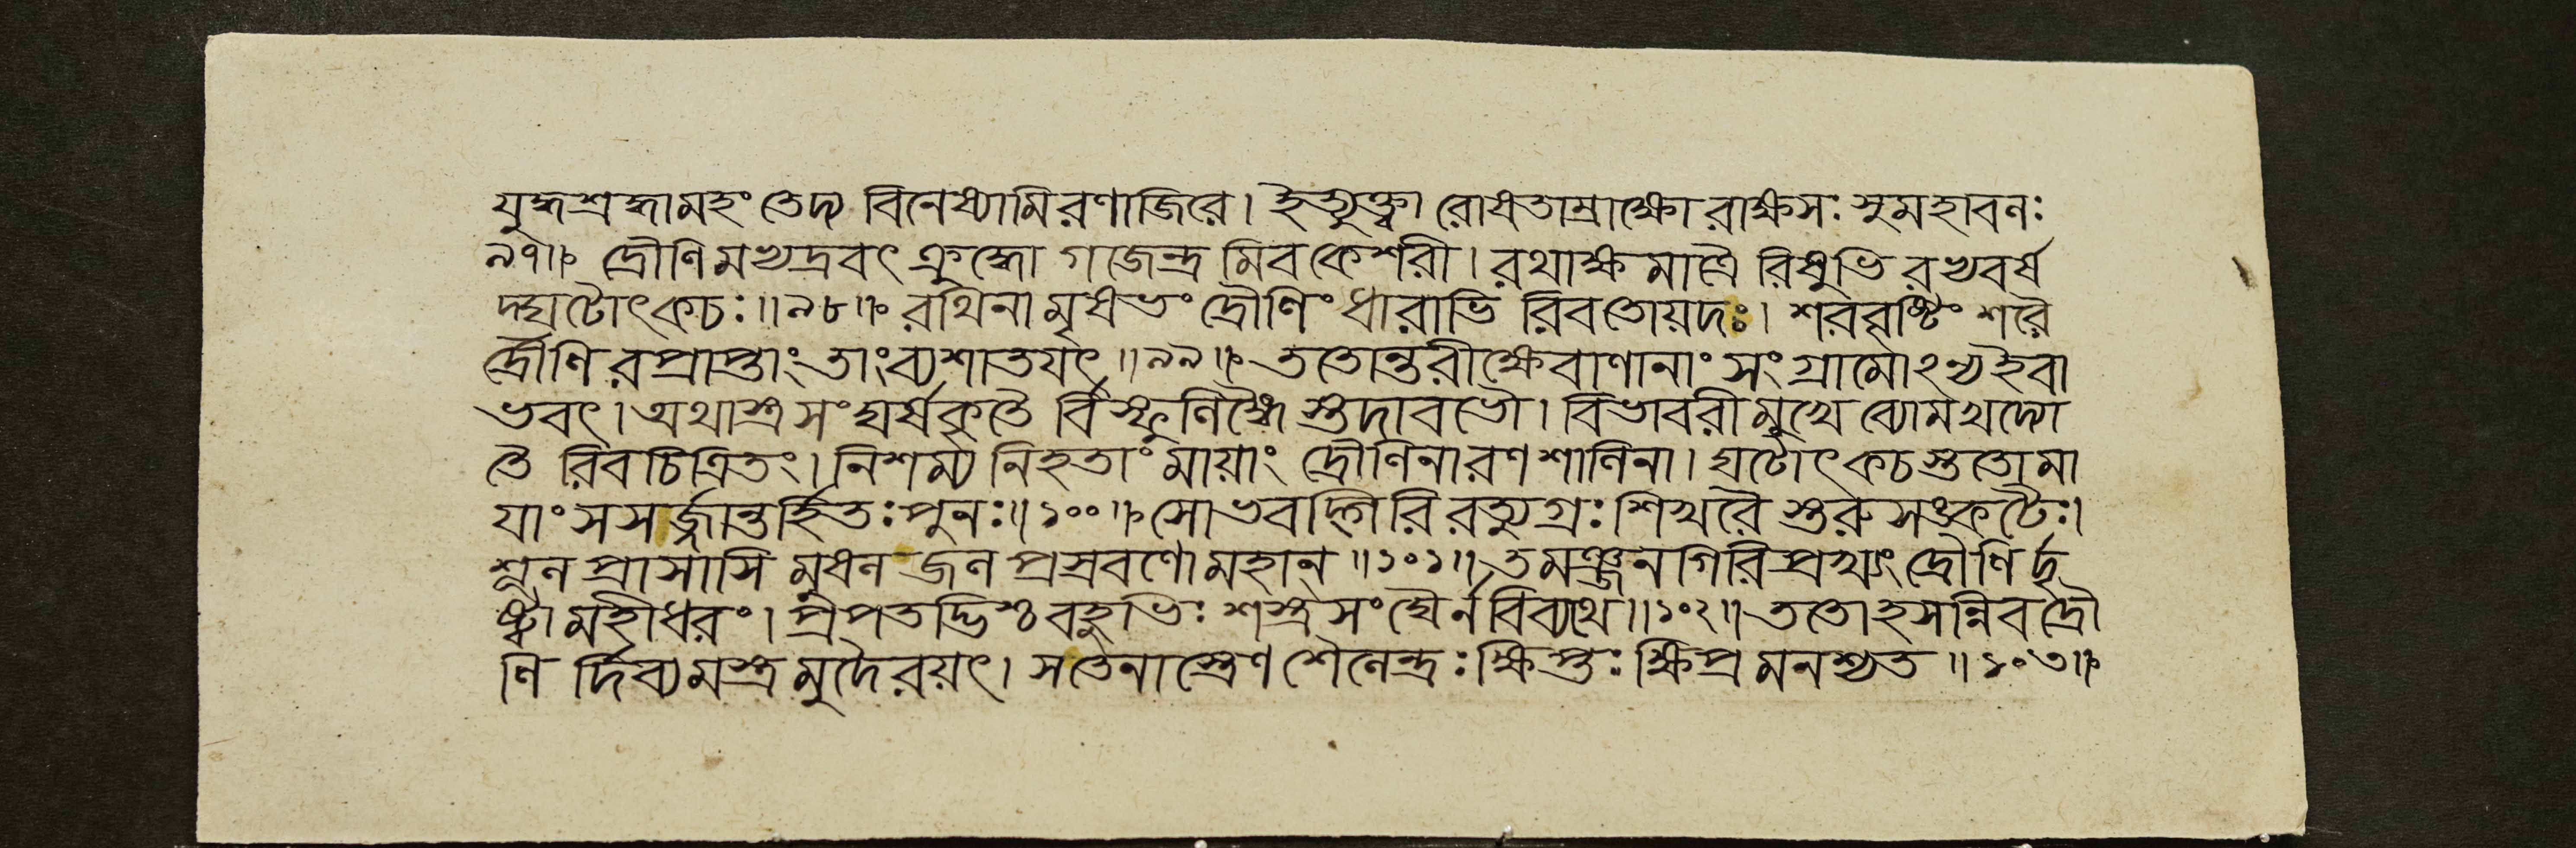 যুদ্ধশ্রদ্ধামহং তেদ্য বিনেষ্যামিরণাজিরে। ইত্যুক্ত্বা রোষতাম্রাক্ষো রাক্ষসঃ সুমহাবলঃ
৯৭॥ দ্রৌণিমভ্যদ্রবৎ ক্রুদ্ধো গজেন্দ্র মিবকেশরী। রথাক্ষ মাত্রৈ রিষুভি রভ্যবর্ষ
দ্ঘটোৎকচঃ॥৯৮॥ রথিনামৃষভং দ্রৌণিং ধারাভি রিবতোয়দঃ। শরবৃষ্টিং শরৈ
র্দ্রৌণি রপ্রাপ্তাং তাংব্যশাতযৎ॥৯৯॥ ততোন্তরীক্ষেবাণানাং সংগ্রামোঽন্যইবা
ভবৎ। অথাস্ত্র সংঘর্ষকৃতৈ র্বিস্ফুলিঙ্গৈ স্তুদাবভৌ। বিভাবরীমুখে ব্যোমখদ্যো
তৈ রিবচিত্রিতং। নিশম্য নিহতাং মায়াং দ্রৌণিনারণশালিনা। ঘটোৎকচস্ততোমা
যাং সসর্জ্জান্তর্হিতঃপুনঃ॥১০০॥ সোভবদ্গিরিরত্যুগ্রঃ শিখরৈ স্তরুসঙ্কটৈঃ।
শূলপ্রাসাসি মুষলজলপ্রস্রবণোমহান্॥১০১॥ তমঞ্জনগিরিপ্রখ্যং দ্রৌণির্দৃ
ষ্ট্বা মহীধরং। প্রপতদ্ভিশ্চ বহুভিঃ শস্ত্রসংঘৈর্নবিব্যথে॥১০২॥ ততোহসন্নিবদ্রৌ
ণি র্দিব্যমস্ত্রমুদৈরয়ৎ। সতেনাস্ত্রেণ শৈলেন্দ্রঃ ক্ষিপ্তঃ ক্ষিপ্রমনশ্যত॥১০৩॥